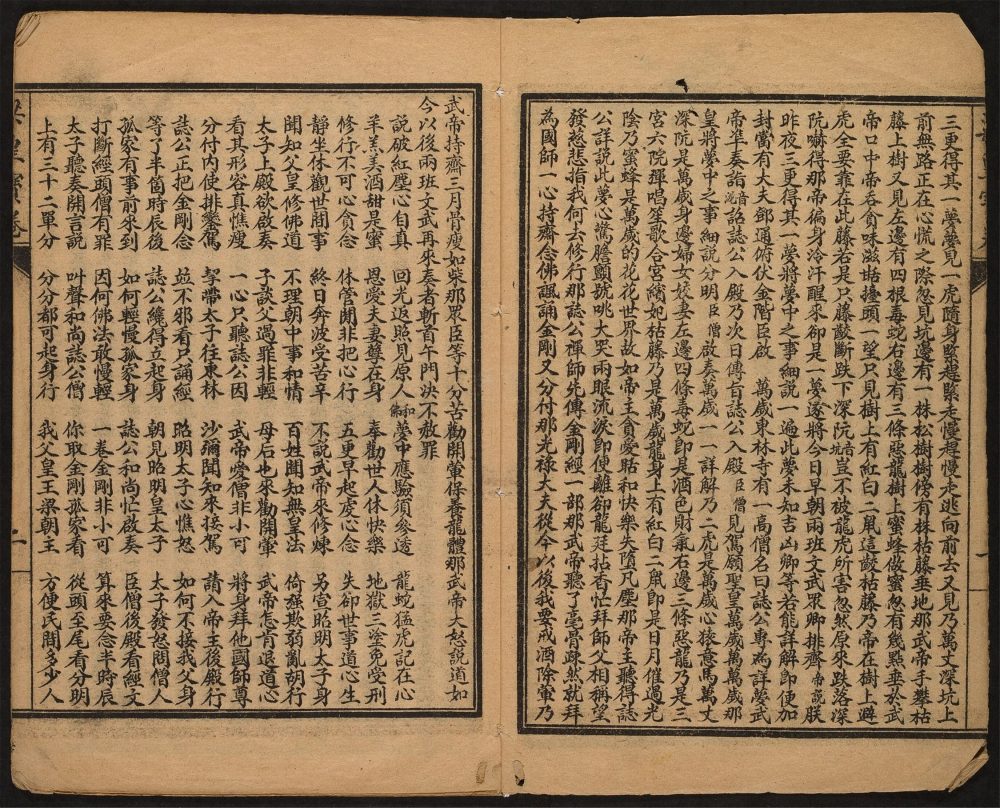 三更得其一夢夢見一虎隨身緊趕緊走慢趕慢走逃向前去又見乃萬丈深坑上
前無路正在心慌之際忽見坑邊有一株松樹樹傍有株枯藤垂地那武帝手攀枯
藤上樹又見左邊有四根毒蛇右邊有三條惡龍樹上蜜蜂做蜜忽有幾㸃垂於武
帝口中帝吞食味滋姑擡頭一望只見樹上有紅白二鼠這鼠枯藤乃帝在樹上避
虎全要靠在此藤若是只藤斷跌下深阬豈不被龍虎所害忽然原來跌落深
阬嚇得那帝徧身冷汗醒來卻是一夢遂將今日早朝兩班文武眾卿排齊帝說朕
昨夜三更得其一夢將夢中之事細說一遍此夢未知吉凶卿等若能詳解即便加
封當有大夫鄧通俯伏金階臣啟 萬歲東林寺有一高僧名曰誌公專為詳夢武
帝準奏詣詔誌公入殿乃次日傳旨誌公入殿臣僧見駕願聖皇萬歲萬萬歲那
皇將夢中之事細說分明臣僧啟奏萬歲一一詳解乃二虎是萬歲心猿意馬萬丈
深阬是萬歲身邊婦女嬌妻左邊四條毒蛇即是酒色財氣右邊三條惡龍乃是三
宮六院彈唱笙歌合宮繽妃枯藤乃是萬歲龍身上有紅白二鼠即是日月催過光
陰乃蜜蜂是萬歲的花花世界故如帝王貪愛聒和快樂失墮凡塵那帝主聽得誌
公詳說此夢心驚膽顫號咷大哭兩眼流淚即便離卻龍廷拈香忙拜師父相稱望
發慈悲指我何去修行那誌公禪師先傳金剛經一部那武帝聽了毫骨疎然就拜
為國師一心持齋念佛諷誦金剛又分付那光祿大夫從今以後我要戒酒除葷乃
梁皇寶卷
一
武帝持齋三月骨瘦如柴那眾臣等十分苦勸開葷保養龍體那武帝大怒說道如
今以後兩班文武再來奏者斬首午門決不赦罪
說破紅塵心自真 回光返照見原人 和佛夢中應驗須參透 龍蛇猛虎記在心
羊羔美酒甜是蜜 恩愛夫妻雙在身 奉勸世人休快樂 地獄三塗免受刑
修行不可心貪念 休管閒非把心行 五更早起虔心念 失卻世事道心生
靜坐休觀世間事 終日奔波受苦辛 不說武帝來修煉 另宣昭明太子身
聞知父皇修佛道 不理朝中事和情 百姓聞知無皇法 倚強欺弱亂胡行
太子上殿欲啟奏 子談父過罪非輕 母后也來勸開葷 武帝怎肯退道心
看其形容真憔瘦 一心只聽誌公因 武帝愛僧非小可 將身拜他國師尊
分付內使排鑾駕 挈帶太子往東林 沙彌聞知來接駕 請入帝王後殿行
誌公正把金剛念 並不邪看只誦經 昭明太子心憔怒 如何不接我父身
等了半箇時辰後 誌公纔得立起身 朝見昭明皇太子 太子發怒問僧人
孤家有事前來到 如何輕慢孤家身 誌公和尚忙啟奏 臣僧後殿看經文
打斷經頭僧有罪 因何佛法敢慢輕 一卷金剛非小可 算來要念半時辰
太子聽奏開言說 叫聲和尚誌公僧 你取金剛孤家看 從頭至尾看分明
上有三十二單分 分分都可起身行 我父皇王梁朝主 方便民間多少人
梁皇寶卷
二